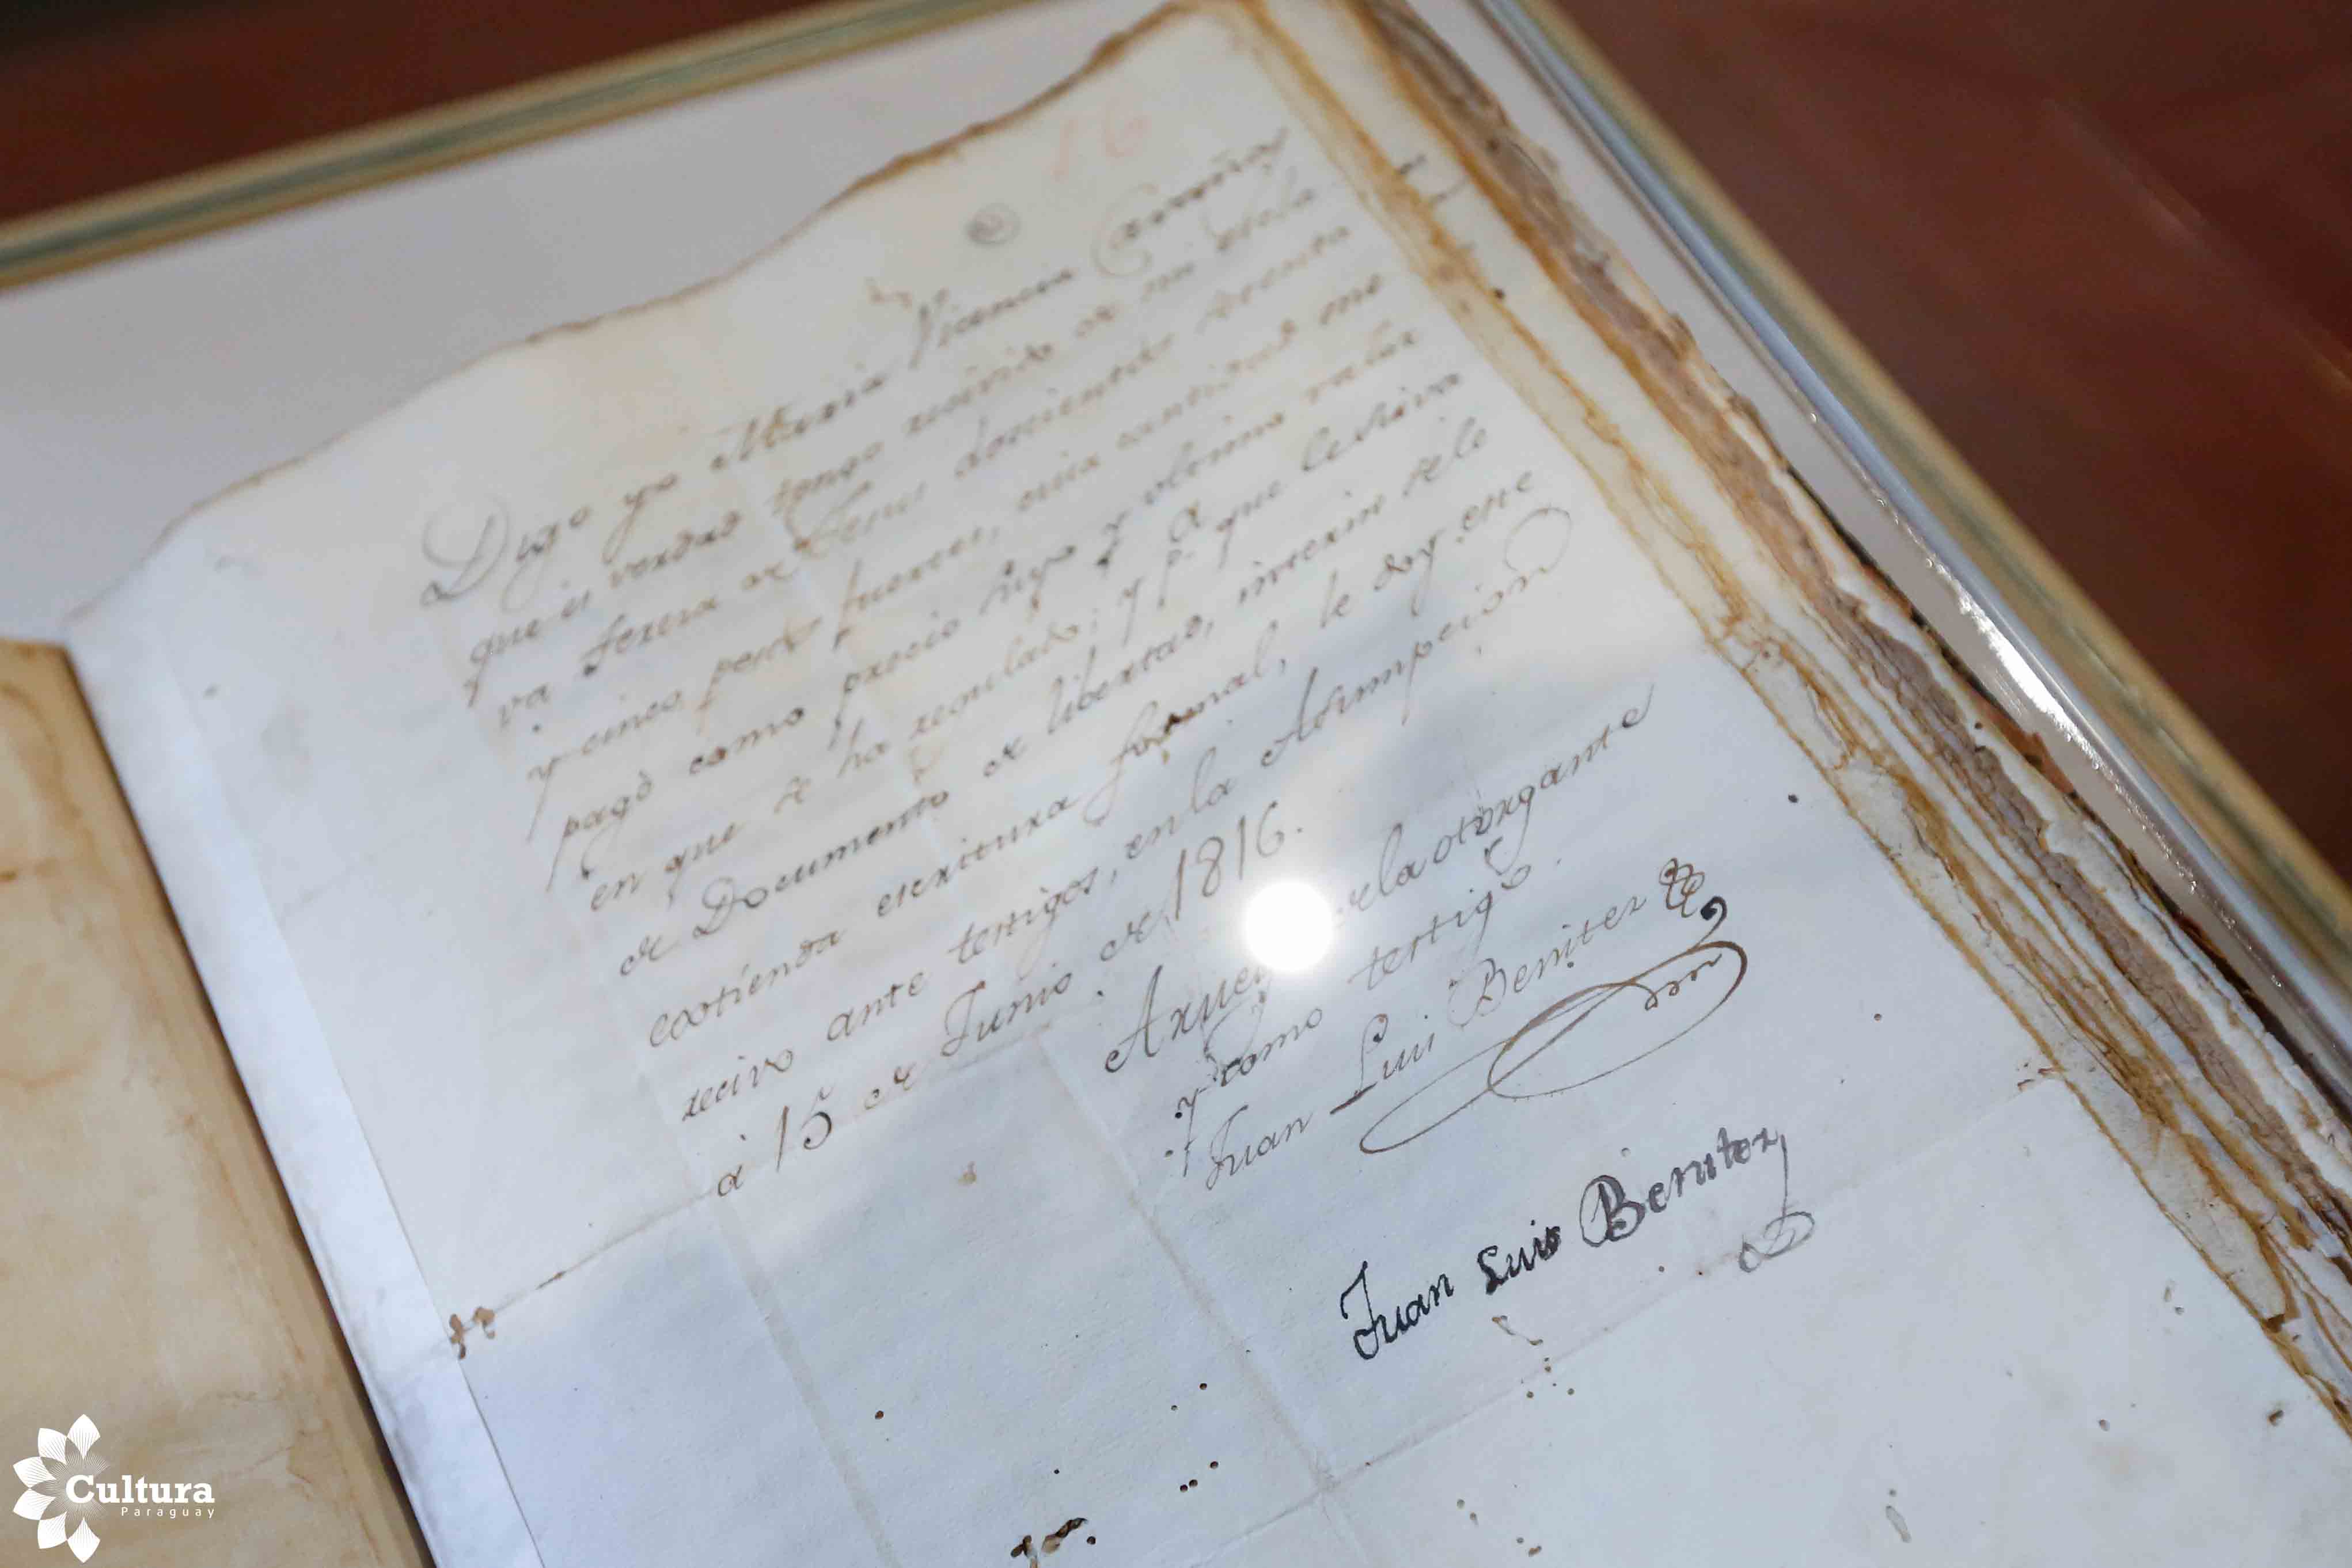 16
Digo yo Maria Vicencia Carreña
que es verdad tengo recivido de mi escla
va Teresa de Jesus doscientos sesenta
y cinco pesos fuertes, cuia cantidad me
pagó como precio suyo y ultimo valor
en que se ha regulado; y pa. que le sirva
de Documento de libertad, interin se le
extienda escritura formal, le doy este
recivo ante testigos, en la Assumpcion
à 15 de Junio de 1816.
de la otorgante
y como testigo.
Juan Luis Benites
Juan Luis Benitez
Cultura
Paraguay